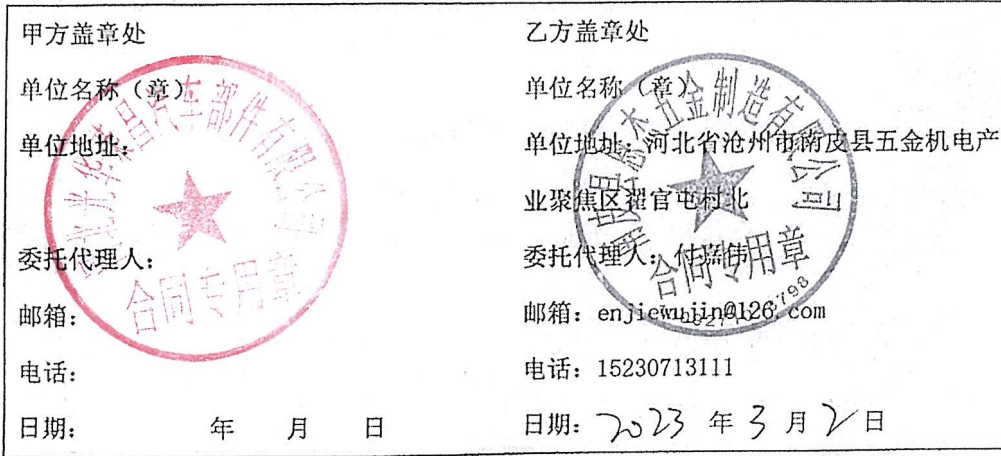 甲方盖章处
单位名称（章）
单位地址：
委托代理人：
邮箱：
电话：
日期： 年 月 日
华 昌汽车部件有限公司
合同专用章
乙方盖章处
单位名称（章）
单位地址：河北省沧州市南皮县五金机电产
业聚焦区翟官屯村北
委托代理人：付嘉伟
邮箱：enjiewujin@126.com
电话：15230713111
日期：2023 年 3 月 2 日
南皮县恩杰五金制造有限公司
合同专用章